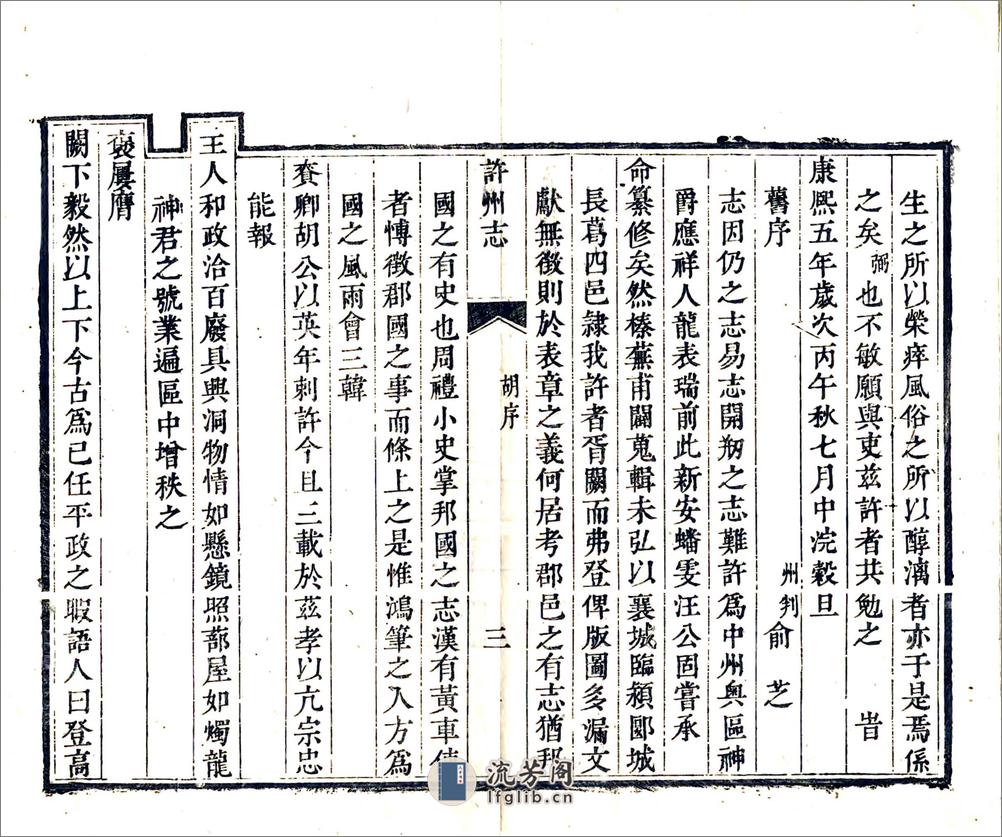 生之所以榮瘁風俗之所以醇漓者亦于是焉係
之矣弼也不敏願與吏茲許者共勉之　旹
康熙五年歲次丙午秋七月中浣穀旦
舊序　州判俞芝
志因仍之志易志開刱之志難許為中州輿區神
爵應祥人龍表瑞前此新安蟠雯汪公固嘗承
命纂修矣然榛蕪甫闢蒐輯未弘以襄城臨潁郾城
長葛四邑隸我許者胥闕而弗登俾版圖多漏文
獻無徵則於表章之義何居考郡邑之有志猶邦
許州志　胡序　三
國之有史也周禮小史掌邦國之志漢有黃車使
者慱徵郡國之事而條上之是惟鴻筆之人方為
國之風雨會三韓
賚卿胡公以英年刺許今且三載於茲孝以亢宗忠
能報
王人和政洽百廢具興洞物情如懸鏡照蔀屋如燭龍
神君之號業遍區中增秩之
褒屢膺
闕下毅然以上下今古為已任平政之暇語人曰登高
流芳阁
lfglib.cn